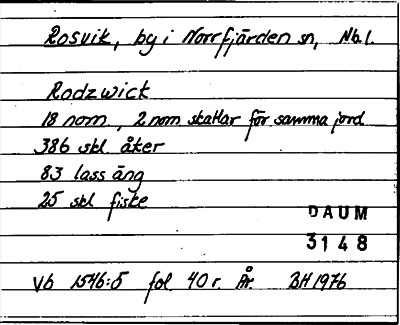 Rosvik, by i Norrfjärden sn, Nb l.
Rodzwick
18 nom., 2 nom skattar för samma jord
386 skl åker
83 lass äng
25 skl fiske
DAUM
3148
Vb 1546:5 fol 40 r. År BH 1976